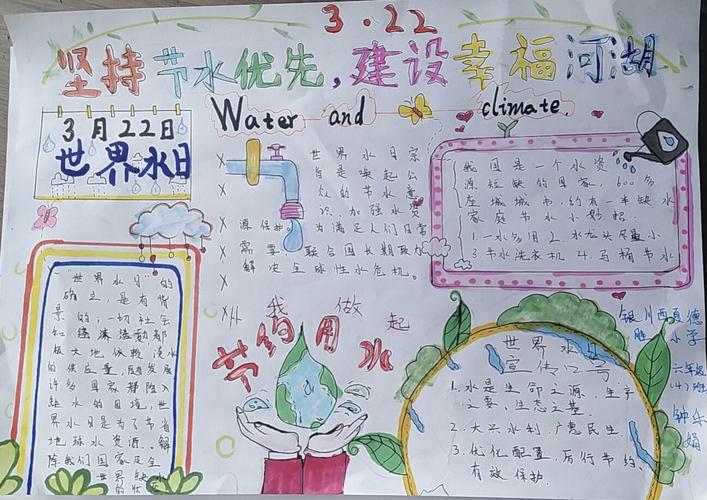 3.22
坚持节水优先,建设幸福河湖
Water and climate.
3月22日
世界水日
世界水日宗
旨是唤起公
众的节水意
识,加强水资
源保护。为满足人们日常
需要,联合国长期致力
解决全球性水危机。
我国是一个水资
源短缺的国家,600多
座城城市,约有一半缺水
家庭节水小妙招:
1.一水多用 2.水龙头尽量小
3节水洗衣机 4.马桶节水
世界水日的
确立,是有背
景的:一切社会
和经济活动都
极大地依赖淡水
的供应量,随着发展
许多国家都陷入
缺水的困境,世
界水日是为了节省
地球水资源。解
除我们国家及全
世界缺水
的状
从我做起
节约用水
世界水日
宣传口号
1.水是生命之源,生产
之要,生态之基。
2.大兴水利,广惠民生
3.优化配置,厉行节约,
有效保护。
银川西夏德
胜小学
六年级
(4)班
钟乐
娟